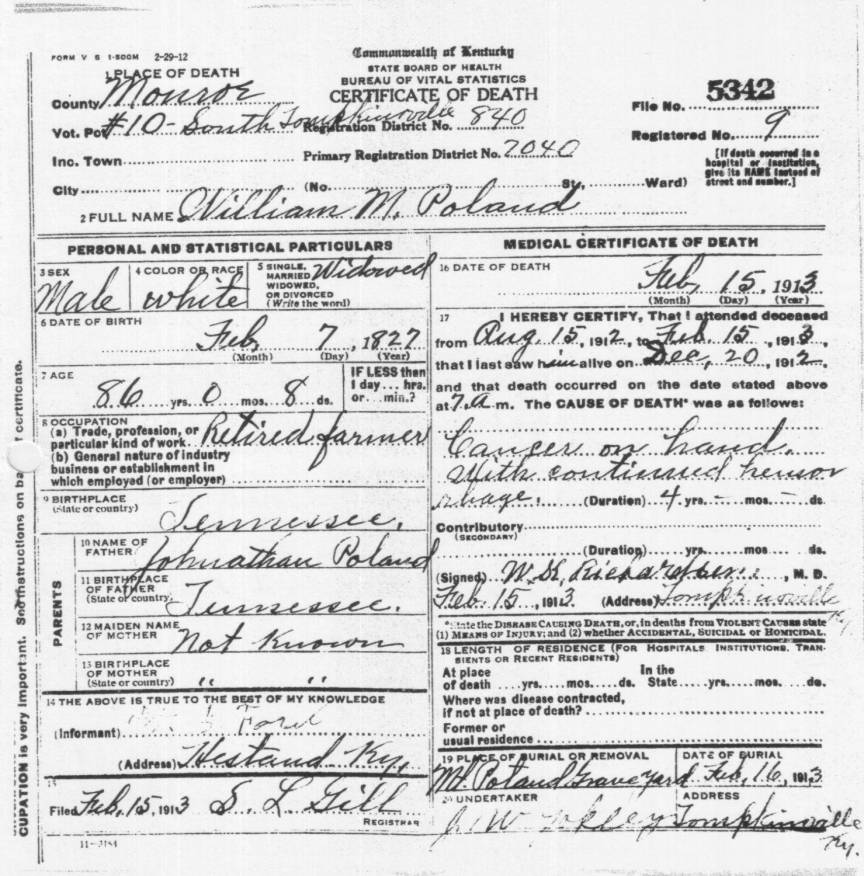 FORM V S 1-500M 2-29-12
Commonwealth of Kentucky
STATE BOARD OF HEALTH
BUREAU OF VITAL STATISTICS
CERTIFICATE OF DEATH
1 PLACE OF DEATH
County Monroe
Vot. Pct #10 - South Tompkinsville
Inc. Town
City
Registration District No. 840
Primary Registration District No. 2040
(No. St., Ward)
File No. 5342
Registered No. 9
[If death occurred in a
hospital or institution,
give its NAME instead of
street and number.]
2 FULL NAME William M. Poland
PERSONAL AND STATISTICAL PARTICULARS
3 SEX
Male
4 COLOR OR RACE
white
5 SINGLE,
MARRIED
WIDOWED,
OR DIVORCED
(Write the word)
Widowed
6 DATE OF BIRTH
Feb, 7, 1827
(Month) (Day) (Year)
7 AGE
86 yrs. 0 mos. 8 ds.
IF LESS than
1 day... hrs.
or... min.?
8 OCCUPATION
(a) Trade, profession, or
particular kind of work Retired farmer
(b) General nature of industry
business or establishment in
which employed (or employer)
9 BIRTHPLACE
(State or country)
Tennessee.
PARENTS
10 NAME OF
FATHER
Johnathan Poland
11 BIRTHPLACE
OF FATHER
(State or country)
Tennessee.
12 MAIDEN NAME
OF MOTHER
Not Known
13 BIRTHPLACE
OF MOTHER
(State or country)
" "
14 THE ABOVE IS TRUE TO THE BEST OF MY KNOWLEDGE
(Informant) Ford
(Address) Hestand Ky,
15
Filed Feb, 15, 1913 S. L. Gill
REGISTRAR
11-3184
MEDICAL CERTIFICATE OF DEATH
16 DATE OF DEATH
Feb, 15, 1913
(Month) (Day) (Year)
17 I HEREBY CERTIFY, That I attended deceased
from Aug. 15, 1912, to Feb. 15, 1913,
that I last saw him alive on Dec, 20, 1912,
and that death occurred on the date stated above
at 7. a m. The CAUSE OF DEATH* was as follows:
Cancer on hand.
With continued hemor
rhage. (Duration) 4 yrs. - mos. - ds.
Contributory
(SECONDARY)
(Duration) yrs. mos. ds.
(Signed) W. Richardson, M. D.
Feb. 15, 1913 (Address) Tompkinsville Ky.
*State the DISEASE CAUSING DEATH, or, in deaths from VIOLENT CAUSES state
(1) MEANS OF INJURY; and (2) whether ACCIDENTAL, SUICIDAL or HOMICIDAL.
18 LENGTH OF RESIDENCE (FOR HOSPITALS INSTITUTIONS, TRAN-
SIENTS OR RECENT RESIDENTS)
At place of death yrs. mos. ds. In the State yrs. mos. ds.
Where was disease contracted,
if not at place of death?
Former or
usual residence
19 PLACE OF BURIAL OR REMOVAL
Mt Poland Graveyard
DATE OF BURIAL
Feb, 16, 1913
20 UNDERTAKER
ADDRESS
Tompkinsville
Ky.
CUPATION is very important. See instructions on ba f certificate.